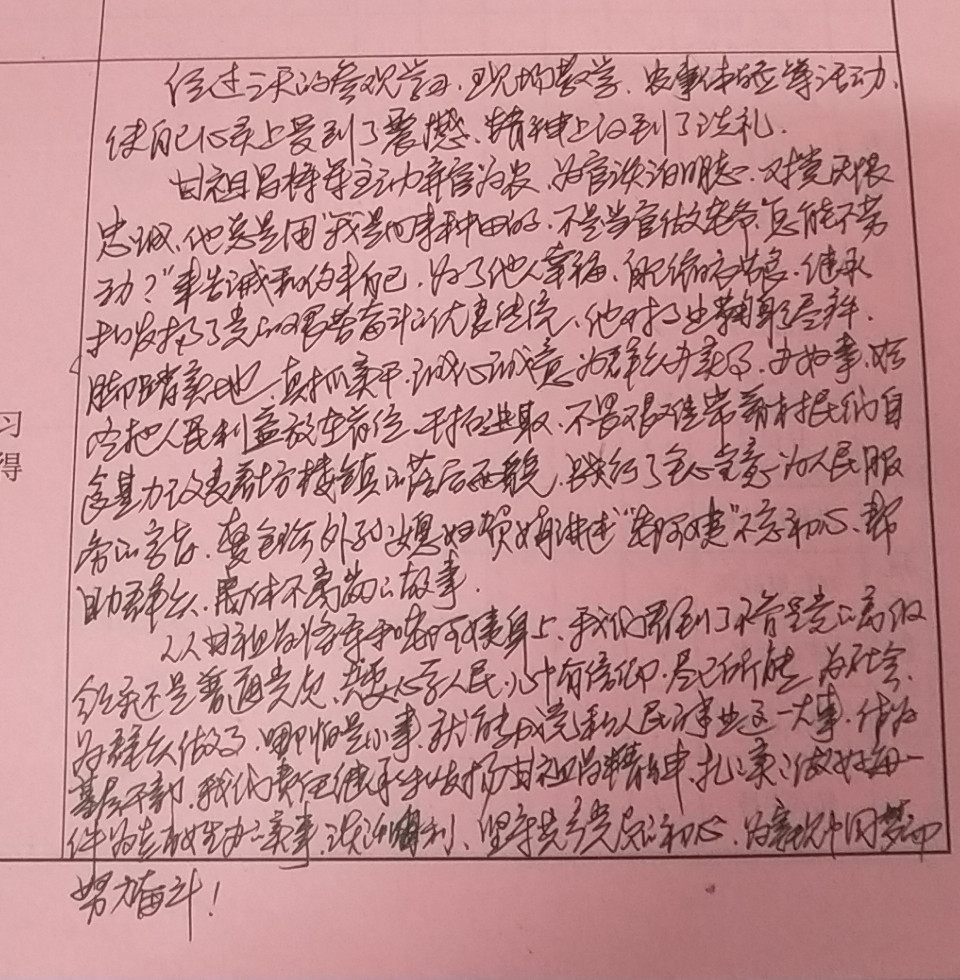 经过三天的参观学习、现场教学、农事体验等活动,
使自己心灵上受到了震撼、精神上得到了洗礼.
甘祖昌将军主动弃官为农、为官淡泊明志、对党无限
忠诚、他总是用"我是回来种田的、不是当官做老爷、怎能不劳
动?"来告诫和约束自己,为了他人幸福、自己缩衣节食、继承
和发扬了党的艰苦奋斗的优良传统、他对
脚踏实地、真抓实干、诚心诚意为群众办实事、办好事、始
终把人民利益放在首位、开拓进取、不畏艰难带领村民们自
食其力改变坊楼镇的落后面貌、践行了全心全意为人民服
务的宗旨、外孙媳妇讲述"老阿姨"不忘初心、帮
助群众、的故事.
从甘祖昌将军和老阿姨身上、我们看到了不管是党的高级
还是普通党员、只要心系人民、心中有信仰、尽己所能、为社会、
为群众做事、哪怕是小事、就能成党和人民的事业这一大事、作为
基层干部、我们责任继承和发扬甘祖昌精神、扎扎实实做好每一
件为办的实事、淡泊名利、坚守共产党员的初心、为实现中国梦而
努力奋斗!
习
得